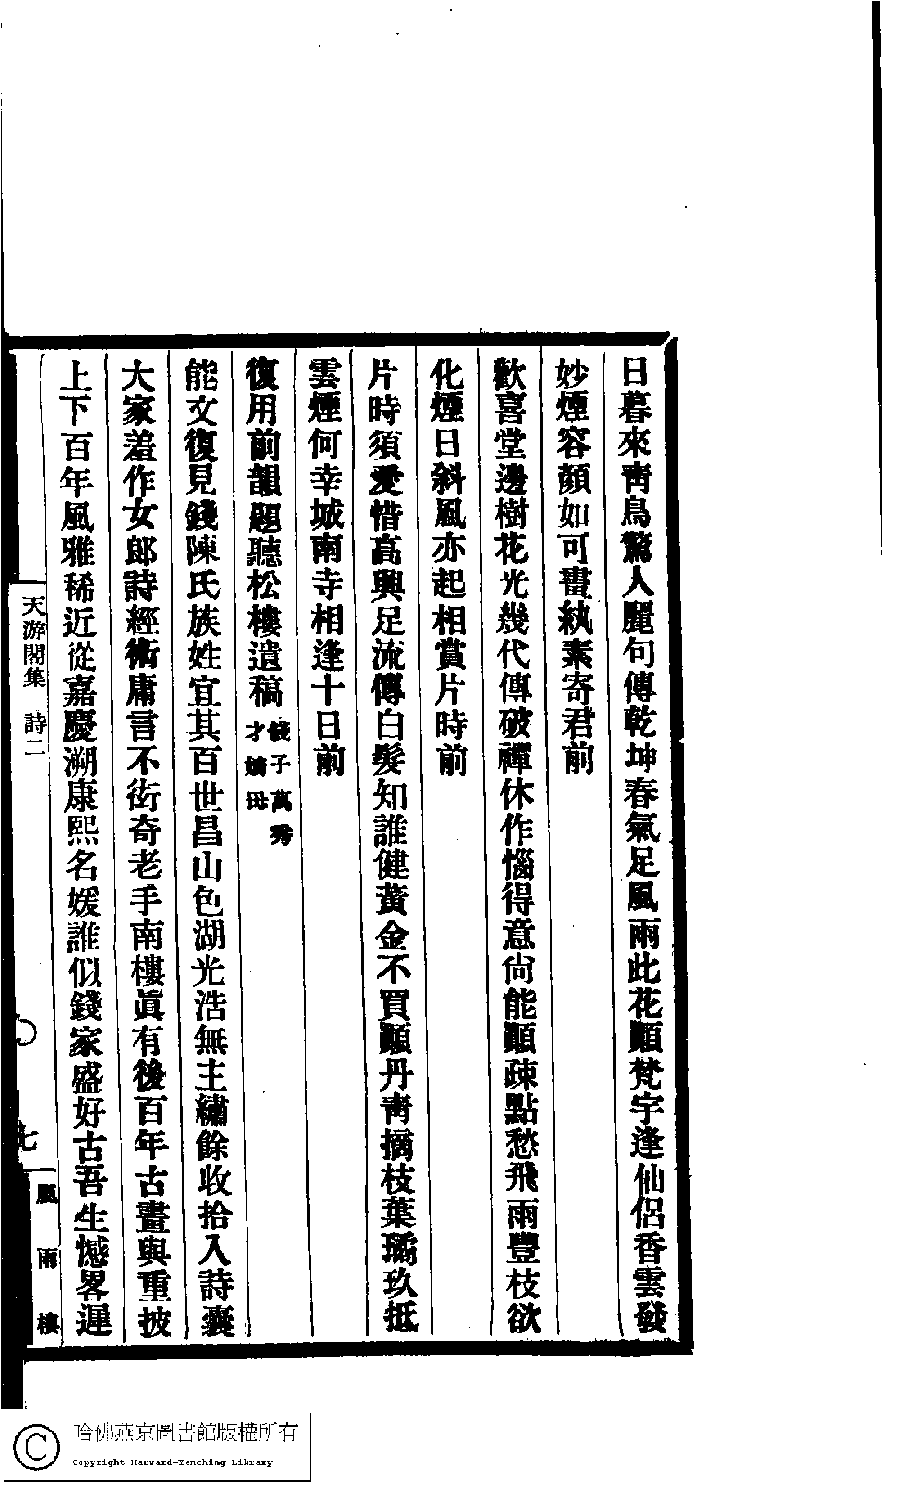 日暮來靑鳥驚人麗句傳乾坤春氣足風雨此花顚梵宇逢仙侶香雲發
妙煙容顏如可畫紈素寄君前
歡喜堂邊樹花光幾代傳破禪休作惱得意尙能顚疎點愁飛雨豐枝欲
化煙日斜風亦起相賞片時前
片時須愛惜高興足流傳白髮知誰健黃金不買顚丹靑摘枝葉璚玖抵
雲煙何幸城南寺相逢十日前
復用前韻題聽松樓遺稿
錢子萬秀
才嫡母
能文復見錢陳氏族姓宜其百世昌山色湖光浩無主繡餘收拾入詩囊
大家羞作女郞詩經術庸言不衒奇老手南樓眞有後百年古畫與重披
上下百年風雅稀近從嘉慶溯康熙名媛誰似錢家盛好古吾生憾畧遲
天游閣集 詩二
七
風雨樓
哈佛燕京圖書館版權所有
Copyright Harvard-Yenching Library